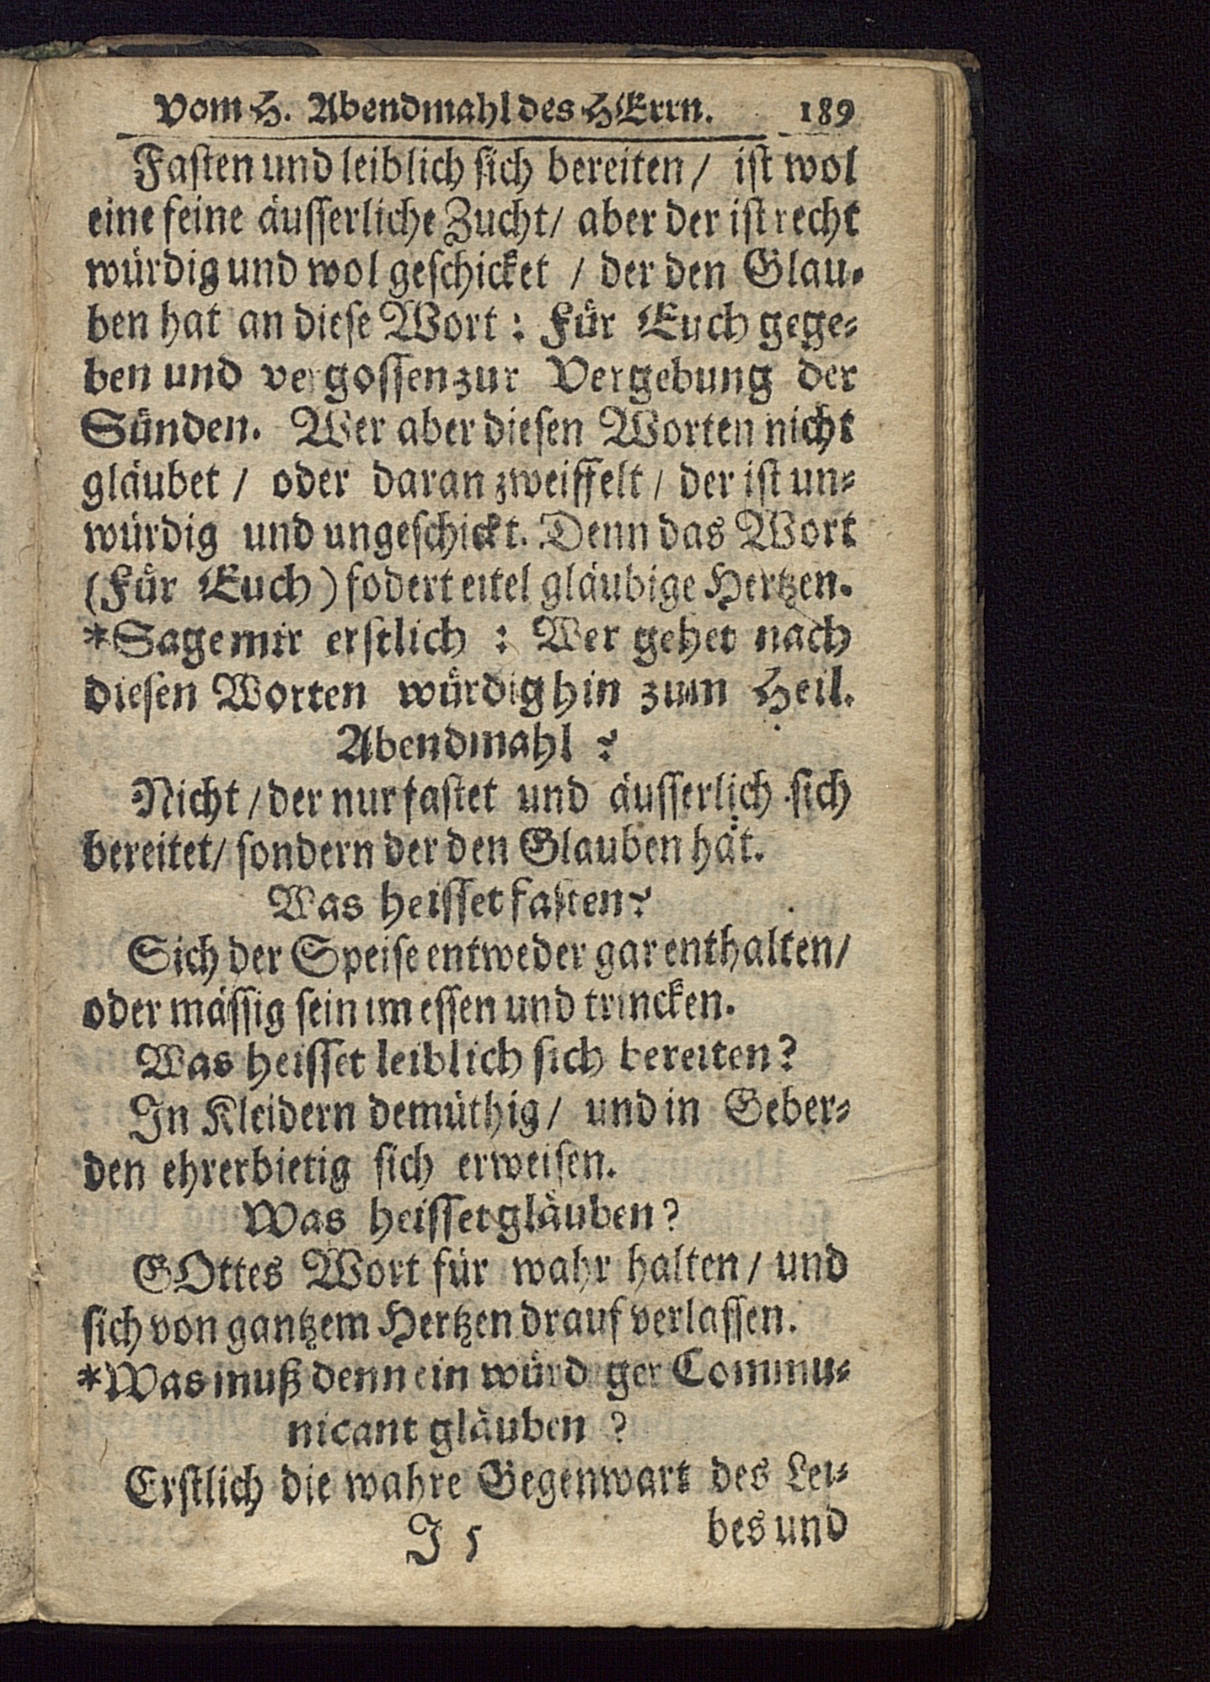 Vom H. Abendmahl des HErrn. 189
Fasten und leiblich sich bereiten / ist wol
eine feine äusserliche Zucht / aber der ist recht
würdig und wol geschicket / der den Glau-
ben hat an diese Wort : Für Euch gege-
ben und vergossen zur Vergebung der
Sünden. Wer aber diesen Worten nicht
gläubet / oder daran zweiffelt / der ist un-
würdig und ungeschickt. Denn das Wort
(Für Euch) fodert eitel gläubige Hertzen.
*Sage mir erstlich : Wer gehet nach
diesen Worten würdig hin zum Heil.
Abendmahl ?
Nicht / der nur fastet und äusserlich sich
bereitet / sondern der den Glauben hat.
Was heisset fasten?
Sich der Speise entweder gar enthalten /
oder mässig sein im essen und trincken.
Was heisset leiblich sich bereiten?
In Kleidern demüthig / und in Geber-
den ehrerbietig sich erweisen.
Was heisset gläuben?
GOttes Wort für wahr halten / und
sich von gantzem Hertzen drauf verlassen.
*Was muß denn ein würdiger Commu-
nicant gläuben ?
Erstlich die wahre Gegenwart des Lei-
J 5 bes und